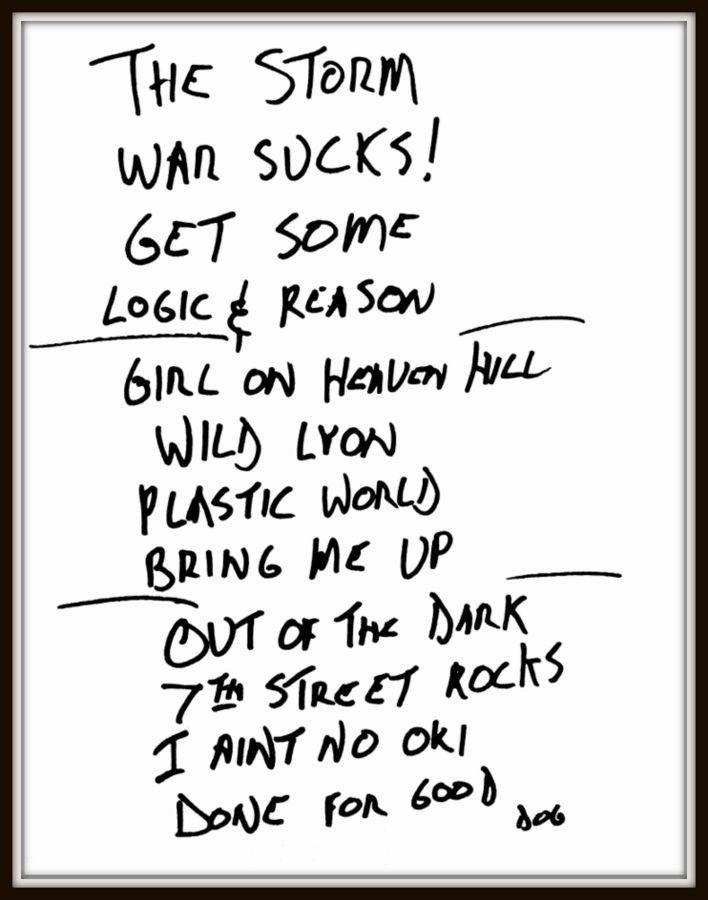 THE STORM
WAR SUCKS!
GET SOME
LOGIC & REASON
GIRL ON HEAVEN HILL
WILD LYON
PLASTIC WORLD
BRING ME UP
OUT OF THE DARK
7TH STREET ROCKS
I AINT NO OKI
DONE FOR GOOD DOG